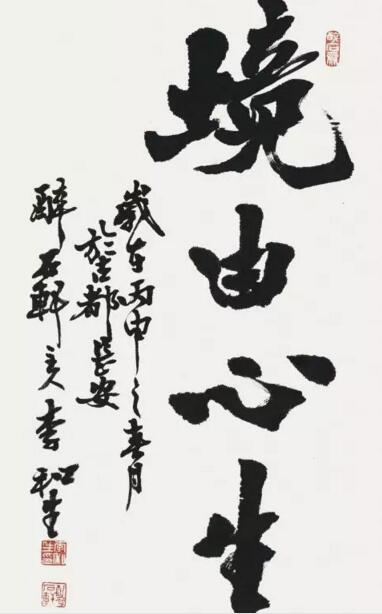 境由心生
歲在丙申之春月
於古都長安
醉石軒主人李和生